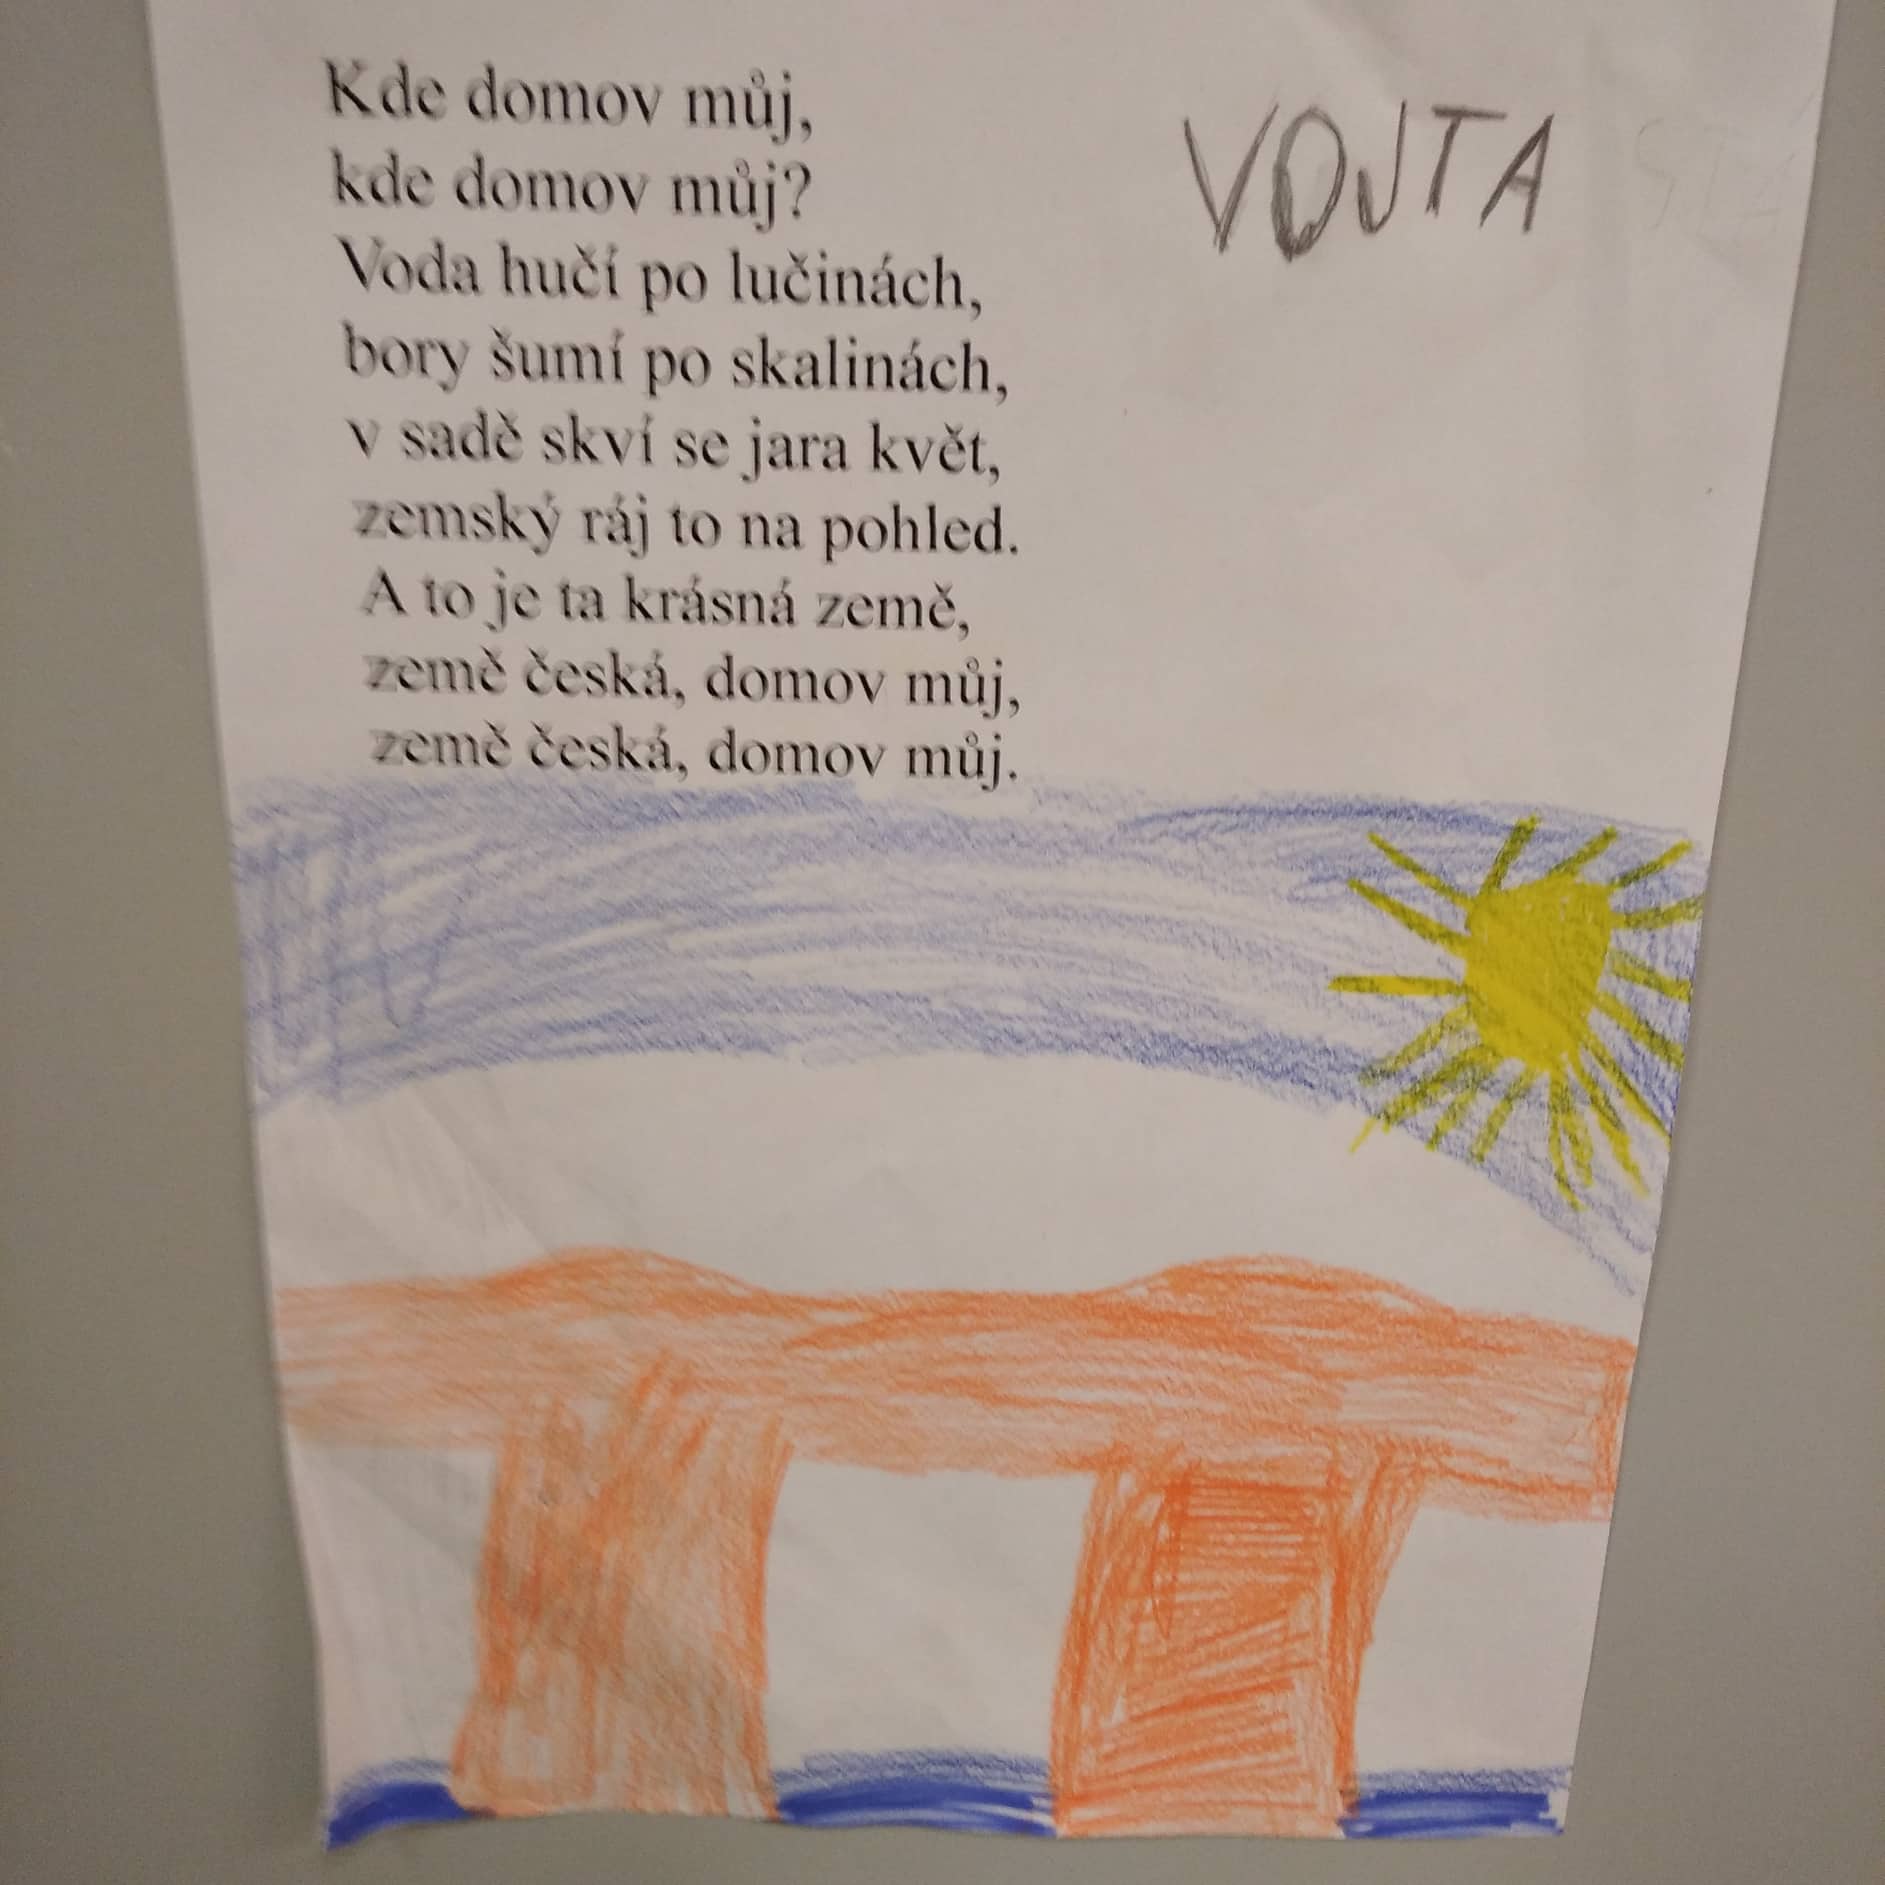 Kde domov můj,
kde domov můj?
Voda hučí po lučinách,
bory šumí po skalinách,
v sadě skví se jara květ,
zemský ráj to na pohled.
A to je ta krásná země,
země česká, domov můj,
země česká, domov můj.
VOJTA